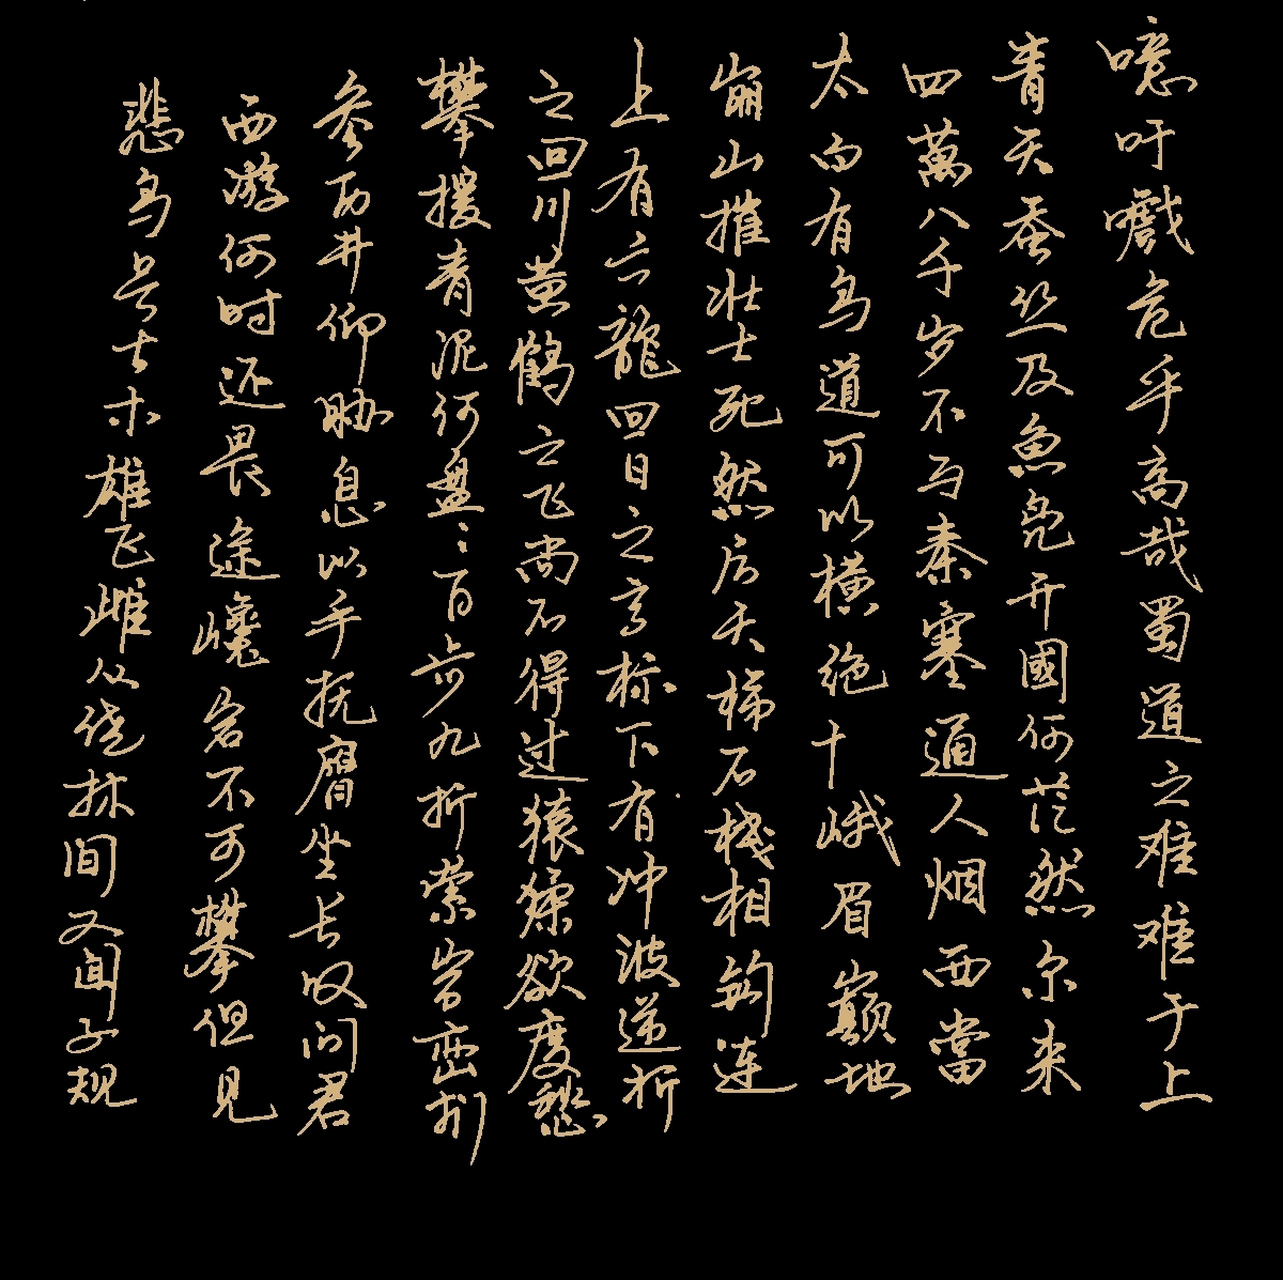 噫吁嚱危乎高哉蜀道之难难于上
青天蚕丛及魚凫开國何茫然尔来
四萬八千岁不与秦塞通人烟西當
太白有鸟道可以横绝十峨眉巅地
崩山摧壮士死然后天梯石棧相鈎连
上有六龍回日之高标下有冲波逆折
之回川黄鶴之飞尚不得过猿猱欲度愁
攀援青泥何盘々百步九折萦岩峦扪
参历井仰胁息以手抚膺坐长叹问君
西游何时还畏途巉岩不可攀但见
悲鸟号古木雄飞雌从绕林间又闻子规